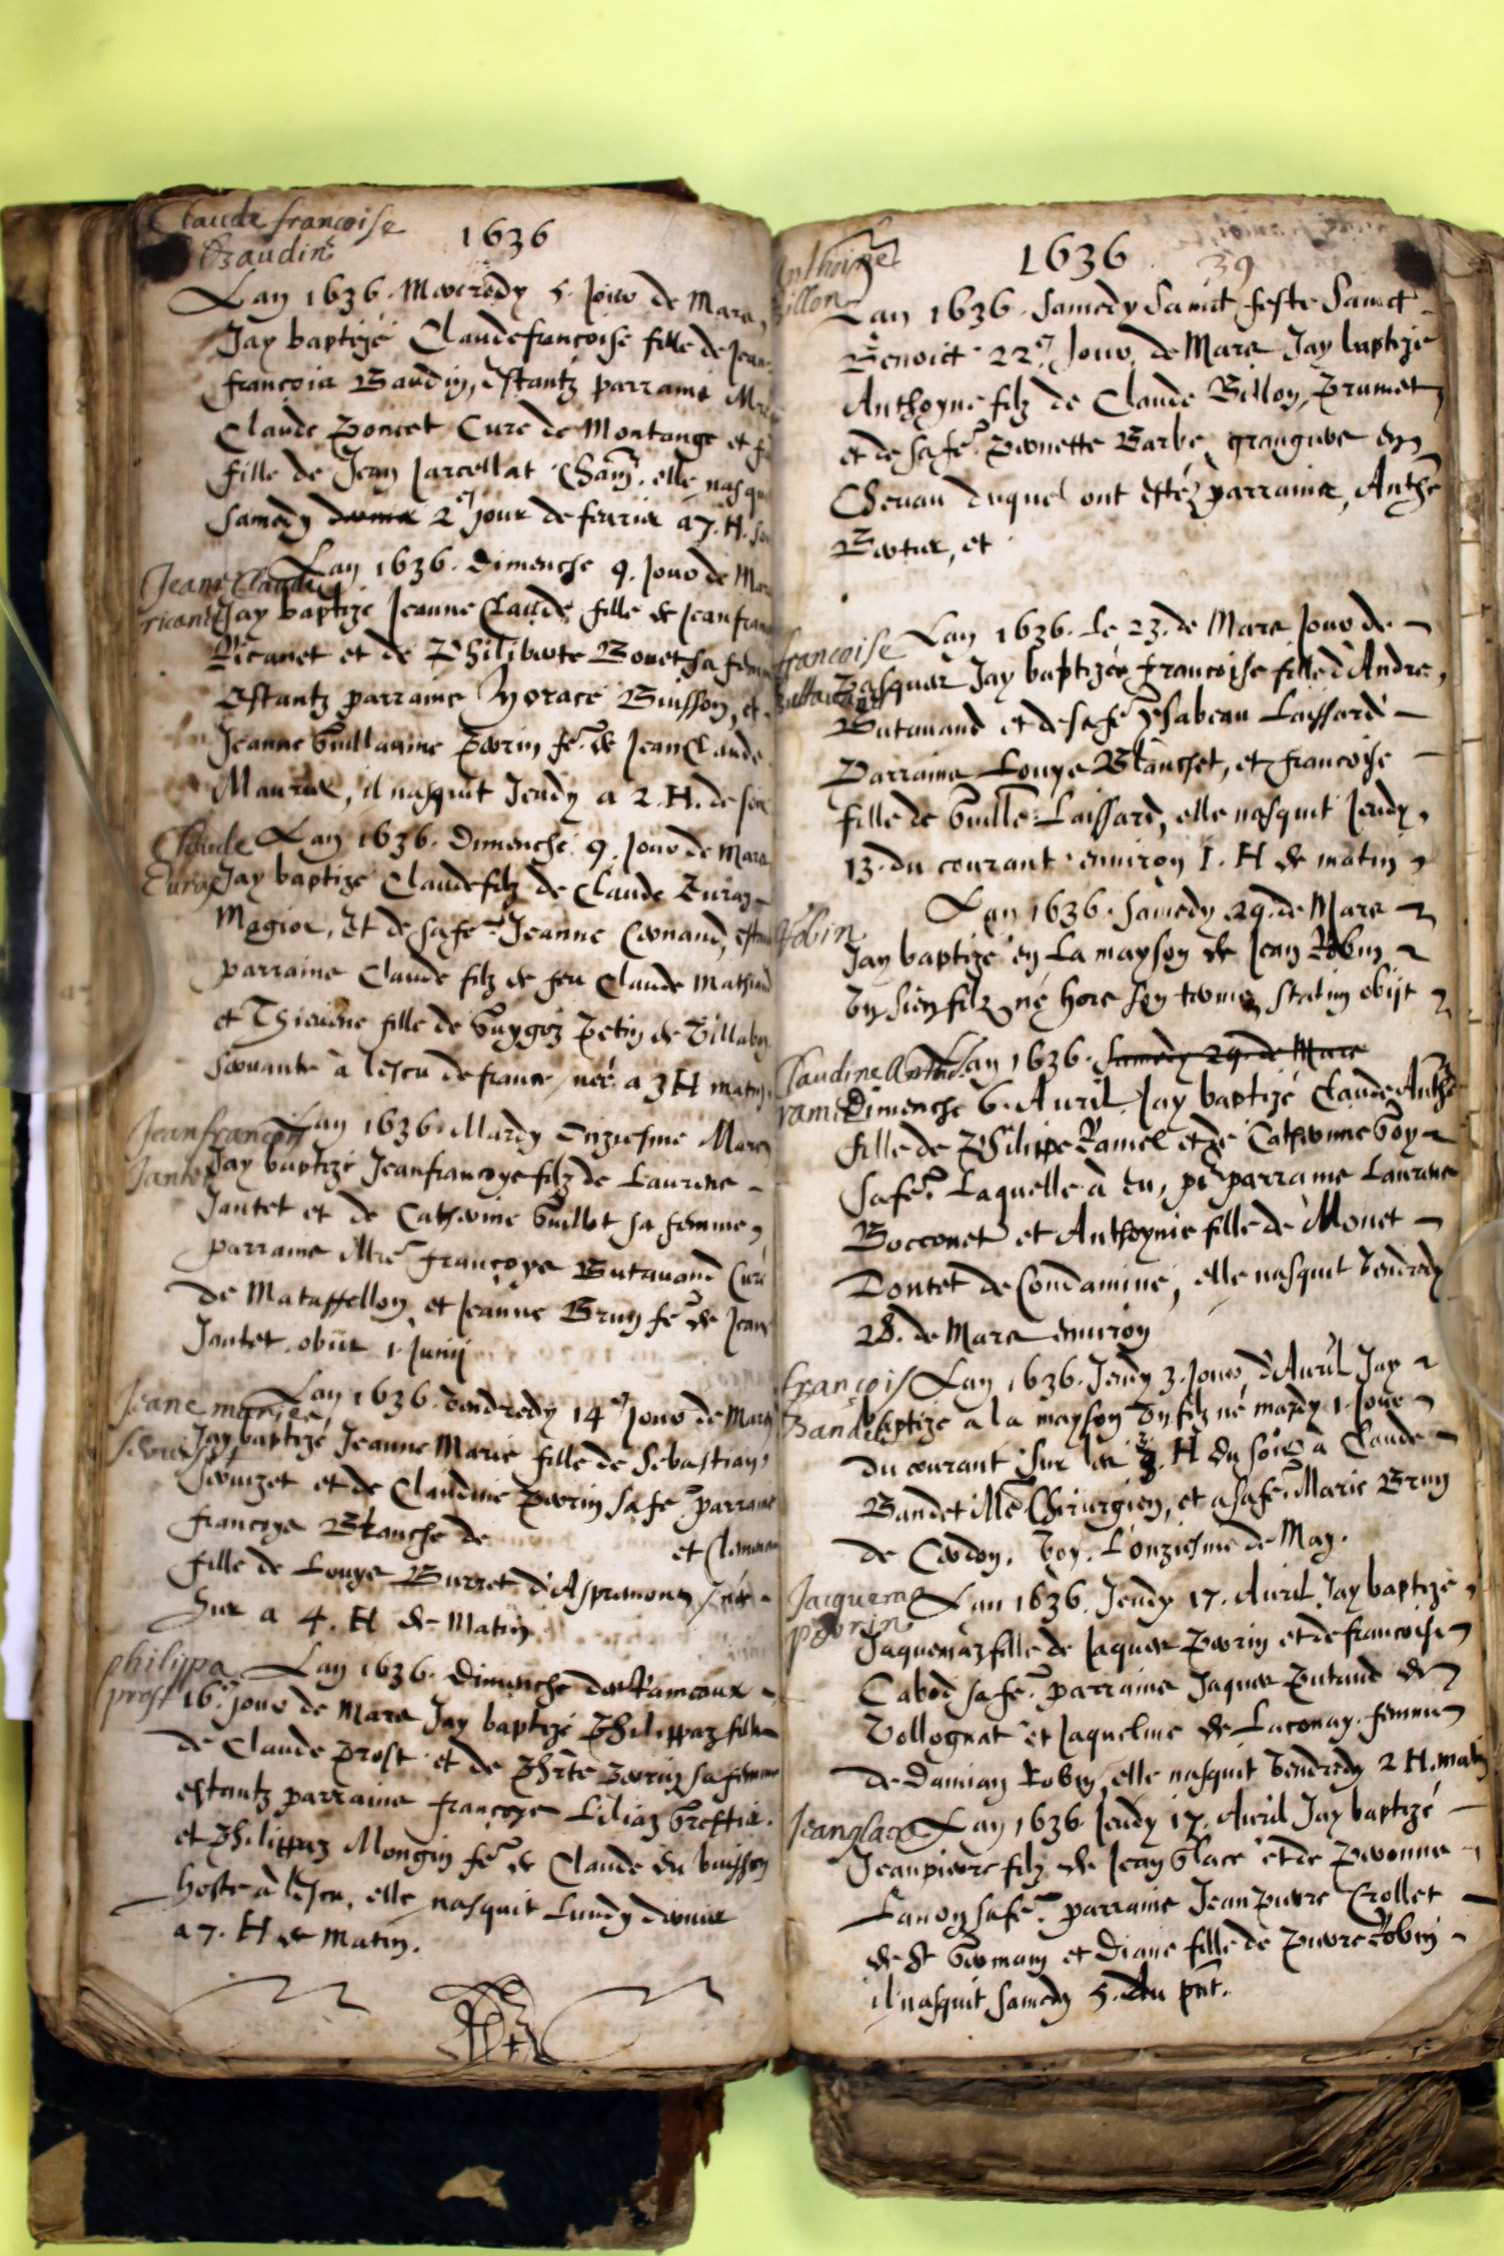 Claude francoise
Baudin
1636
Lan 1636. Mecredy 5. Jour de Mars,
Jay baptizé Claudefrancoise fille de Jean
francois Baudin, estantz parrains Mre
Claude Poncet Curé de Montange et
fille de Jean Jarcellat elle nasquit
samedy dernier 2e jour de feurier a 7. H.
Jeane Claude
ricanet
Lan 1636. Dimenche 9. Jour de Mars
Jay baptizé Jeanne Claude fille de Jean
Ricanet et de Philiberte Bonet sa femme
Estantz parrains Horace Buisson, et
Jeanne Guillaume Perrin fe. de Jean Claude
Maurier, il nasquit Jeudy a 2. H. de soir
Claude
Lan 1636. Dimenche 9. Jour de Mars
Jay baptizé Claude filz de Claude
et de sa fe. Jeanne estantz
parrains Claude filz de feu Claude
et fille de Petin de
seruante à lescu de france, né a 3 H matin
Jeanfrancois
Jantet
Lan 1636. Mardy Mars
Jay baptizé Jeanfrancoys filz de Laurens
Jantet et de Catherine Guillot sa femme
parrains Mre francoys Butauand Curé
de Mataffellon et Jeanne Brun fe. de Jean
Jantet. obiit 1. Junij
Jeane marie
Lan 1636. Vendredy 14e Jour de Mars
Jay baptizé Jeanne Marie fille de Sebastian
et de Claudine Perrin sa fe. parrains
francoys Blanche de et
fille de Louys Burret d'Aspremont
Sur a 4. H de Matin
philippa
prost
Lan 1636. Dimenche des Rameaux
16e jour de Mars Jay baptizé Philippaz fille
de Claude Prost et de Perrin sa femme
estantz parrains francoys
et Philippaz Mongin fe. de Claude du buisson
hoste à lescu, elle nasquit Lundy dernier
a 7. H de Matin.
1636
39
Anthoine
Billon
Lan 1636. Samedy Sainct feste Sainct
Benoict 22e Jour de Mars Jay baptizé
Anthoyne filz de Claude Billon,
et de sa fe. Pernette Barbe, granguer en
duquel ont estéz parrains, Anthe
et
francoise
Buttauand
Lan 1636. Le 23. de Mars Jour de
Pasques Jay baptizés francoise fille d'Andre,
Butauand et de sa fe. Ysabeau Laissard
Parrains Louys Blanchet, et francoise
fille de Guille. Laissard, elle nasquit Jeudy,
13. du courant enuiron 1. H de matin
Robin
Lan 1636. Samedy 29. de Mars
Jay baptizé en La mayson de Jean Robin
Vn sien filz né hors son terme, statim obijt
Claudine
ramel
Lan 1636. Samedy 29. de Mars
Dimenche 6. Auril Jay baptizé Claude Anthe
fille de Philippe Ramel et de Catherine Goy
sa fe. Laquelle à eu, pr parrains Laurens
Bocconet et Anthoynie fille de Monet
Dontet de Condamine, elle nasquit Vendredy
28. de Mars enuiron
françois
Bandet
Lan 1636. Jeudy 3. Jour d'Auril Jay
baptizé a la mayson Vn filz né mardy 1. Jour
du courant sur les H du soir à Claude
Bandet Me Chirurgien, et a sa fe. Marie Brun
de Cerdon. Voy. L'onziesme de May.
Jacquema
perrin
Lan 1636. Jeudy 17. Auril Jay baptizé,
Jaquemaz fille de Jaques Perrin et de francoise
Cabod sa fe. parrains Jaques de
Vollognat et Jaqueline de Laconay femme
de Damian Robin, elle nasquit Vendredy 2 H. matin
Jean glace
Lan 1636 Jeudy 17. Auril Jay baptizé
Jeanpierre filz de Jean Glace et de Peronne
Lanon sa fe. parrains Jean Pierre Crollet
de St Germain et Diane fille de Pierre Robin
il nasquit samedy 5. du pnt.